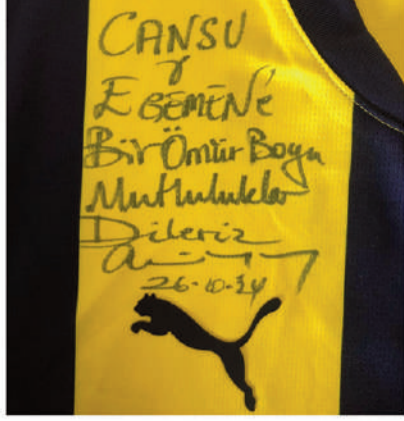 CANSU
EGEMEN'e
Bir Ömür Boyu
Mutluluklar
Dileriz
26-10-24